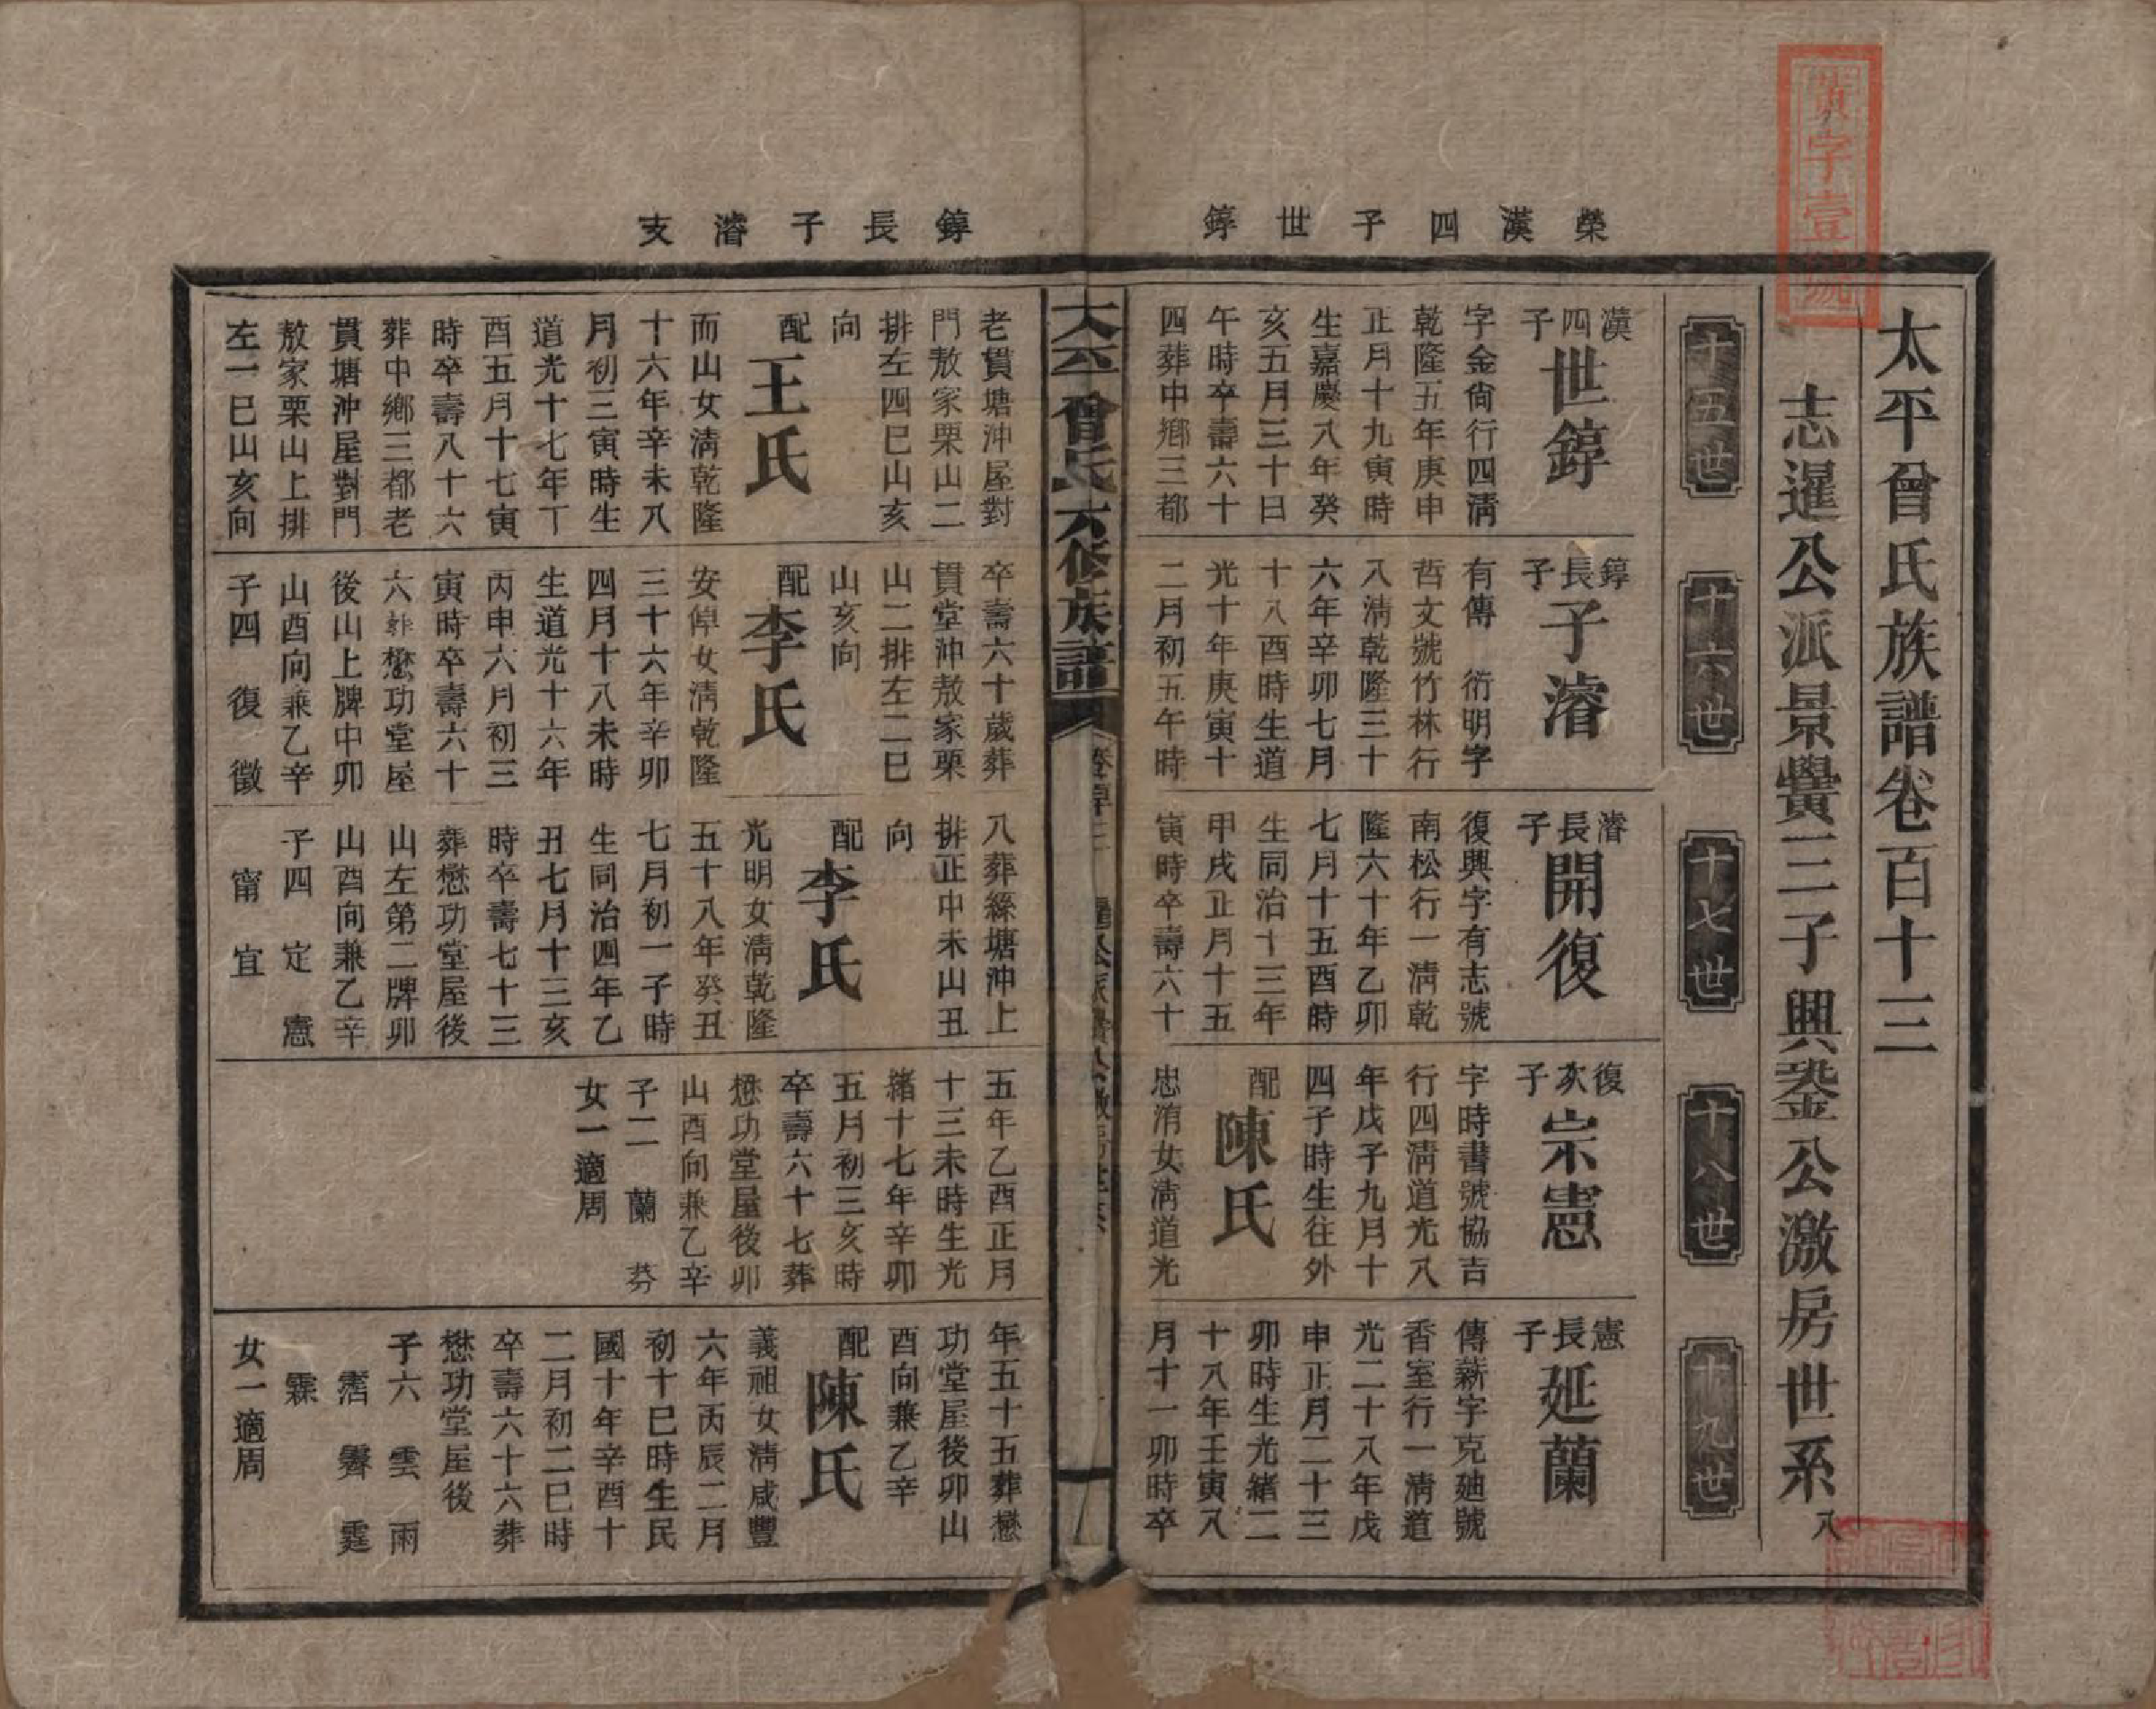 賓字壹號
太平曾氏族譜卷百十三
志暹公派景黌三子興鋆公激房世系 八
榮漢四子世錞
十五世
十六世
十七世
十八世
十九世
漢四子
世錞
字金尙行四淸
乾隆五年庚申
正月十九寅時
生嘉慶八年癸
亥五月三十日
午時卒壽六十
四葬中鄉三都
錞長子
子濬
有傳 衍明字
哲文號竹林行
八淸乾隆三十
六年辛卯七月
十八酉時生道
光十年庚寅十
二月初五午時
濬長子
開復
復興字有志號
南松行一淸乾
隆六十年乙卯
七月十五酉時
生同治十三年
甲戌正月十五
寅時卒壽六十
復次子
宗憲
字時書號協吉
行四淸道光八
年戊子九月十
四子時生往外
配
陳氏
忠淯女淸道光
憲長子
延蘭
傳薪字克廸號
香室行一淸道
光二十八年戊
申正月二十三
卯時生光緒二
十八年壬寅八
月十一卯時卒
太平曾氏六修族譜
錞長子濬支
老貫塘沖屋對
門敖家栗山二
排左四巳山亥
向
配
王氏
而山女淸乾隆
十六年辛未八
月初三寅時生
道光十七年丁
酉五月十七寅
時卒壽八十六
葬中鄉三都老
貫塘沖屋對門
敖家栗山上排
左一巳山亥向
卒壽六十歲葬
貫堂沖敖家栗
山二排左二巳
山亥向
配
李氏
安倬女淸乾隆
三十六年辛卯
四月十八未時
生道光十六年
丙申六月初三
寅時卒壽六十
六葬懋功堂屋
後山上牌中卯
山酉向兼乙辛
子四 復 徵
八葬繇塘沖上
排正中未山丑
向
配
李氏
光明女淸乾隆
五十八年癸丑
七月初一子時
生同治四年乙
丑七月十三亥
時卒壽七十三
葬懋功堂屋後
山左第二牌卯
山酉向兼乙辛
子四 定 憲
甯 宜
五年乙酉正月
十三未時生光
緒十七年辛卯
五月初三亥時
卒壽六十七葬
懋功堂屋後卯
山酉向兼乙辛
子二 蘭 芬
女一適周
年五十五葬懋
功堂屋後卯山
酉向兼乙辛
配
陳氏
義祖女淸咸豐
六年丙辰二月
初十巳時生民
國十年辛酉十
二月初二巳時
卒壽六十六葬
懋功堂屋後
子六 雲 雨
霑 霽 霆
霖
女一適周